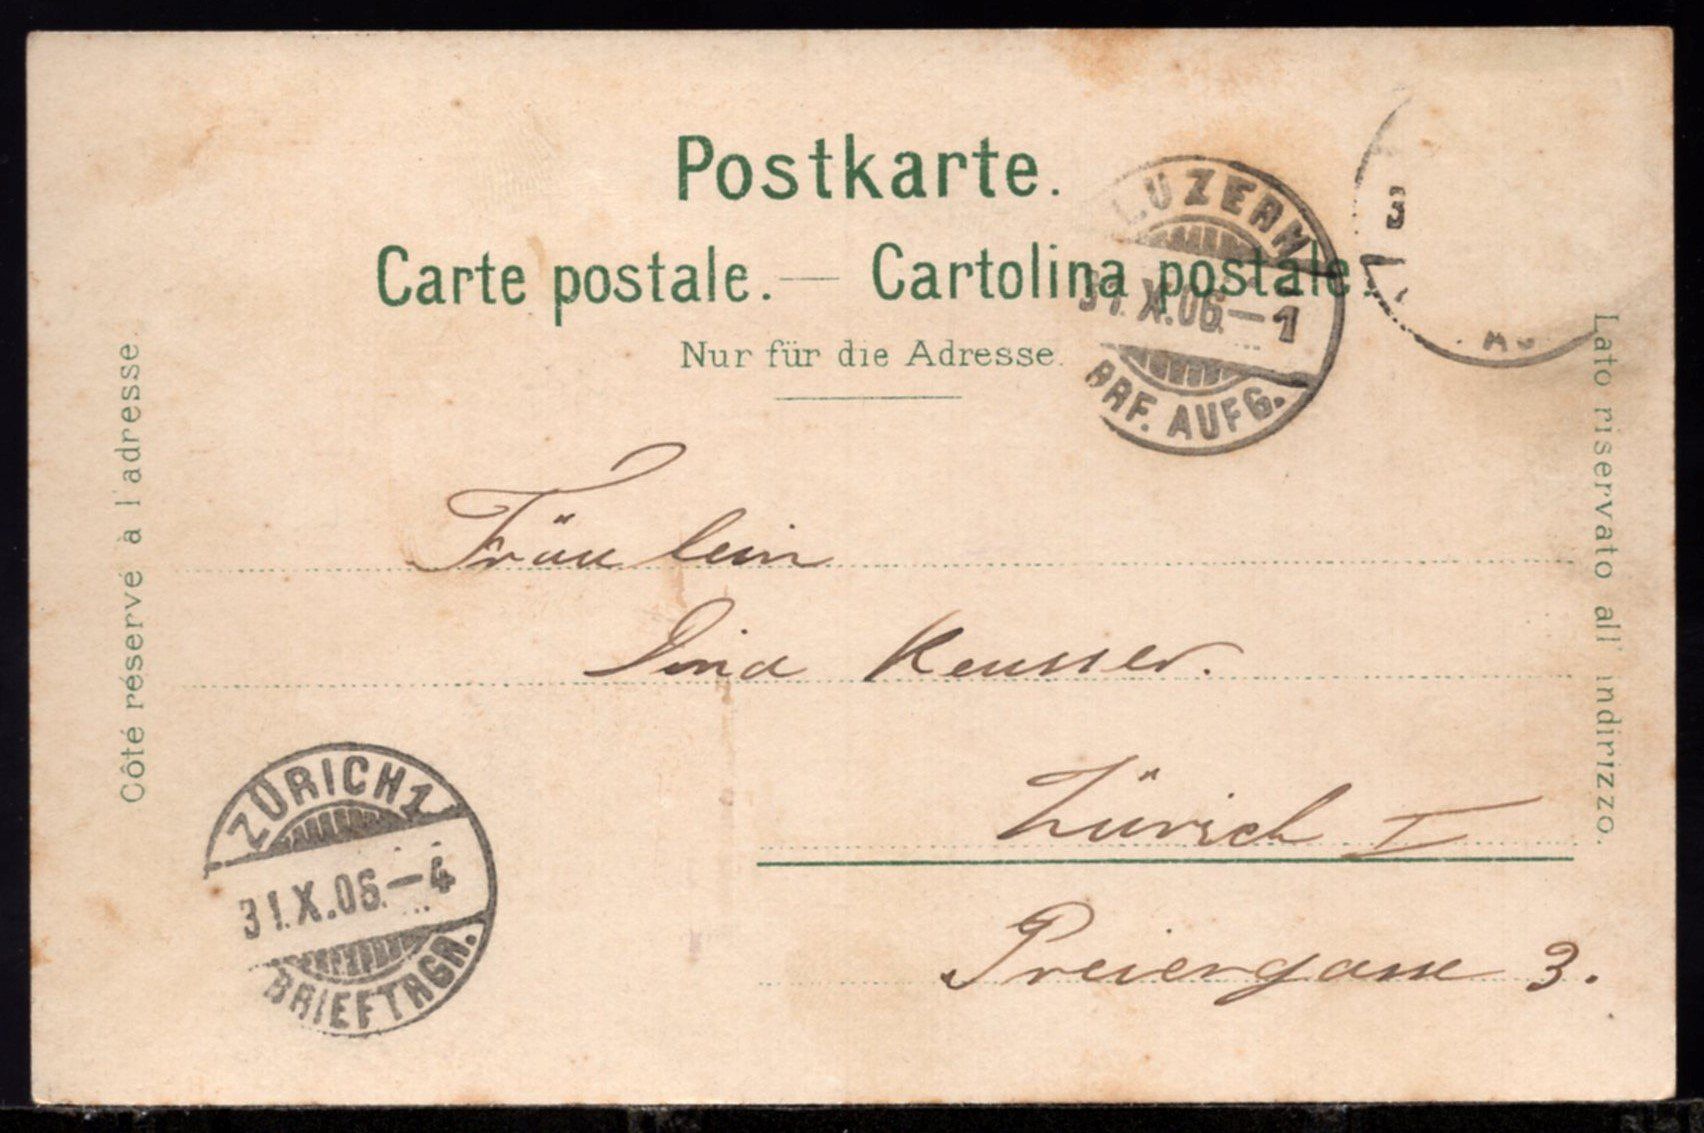 Postkarte.
Carte postale. — Cartolina postale.
Nur für die Adresse.
LUZERN
31. X. 06. – 1
BRF. AUFG.
3
Côté réservé à l'adresse.
Lato riservato all' indirizzo.
Fräulein
Keusser.
Zürich I
Preiergasse 3.
ZÜRICH 1
31. X. 06. – 4
BRIEFTRGR.